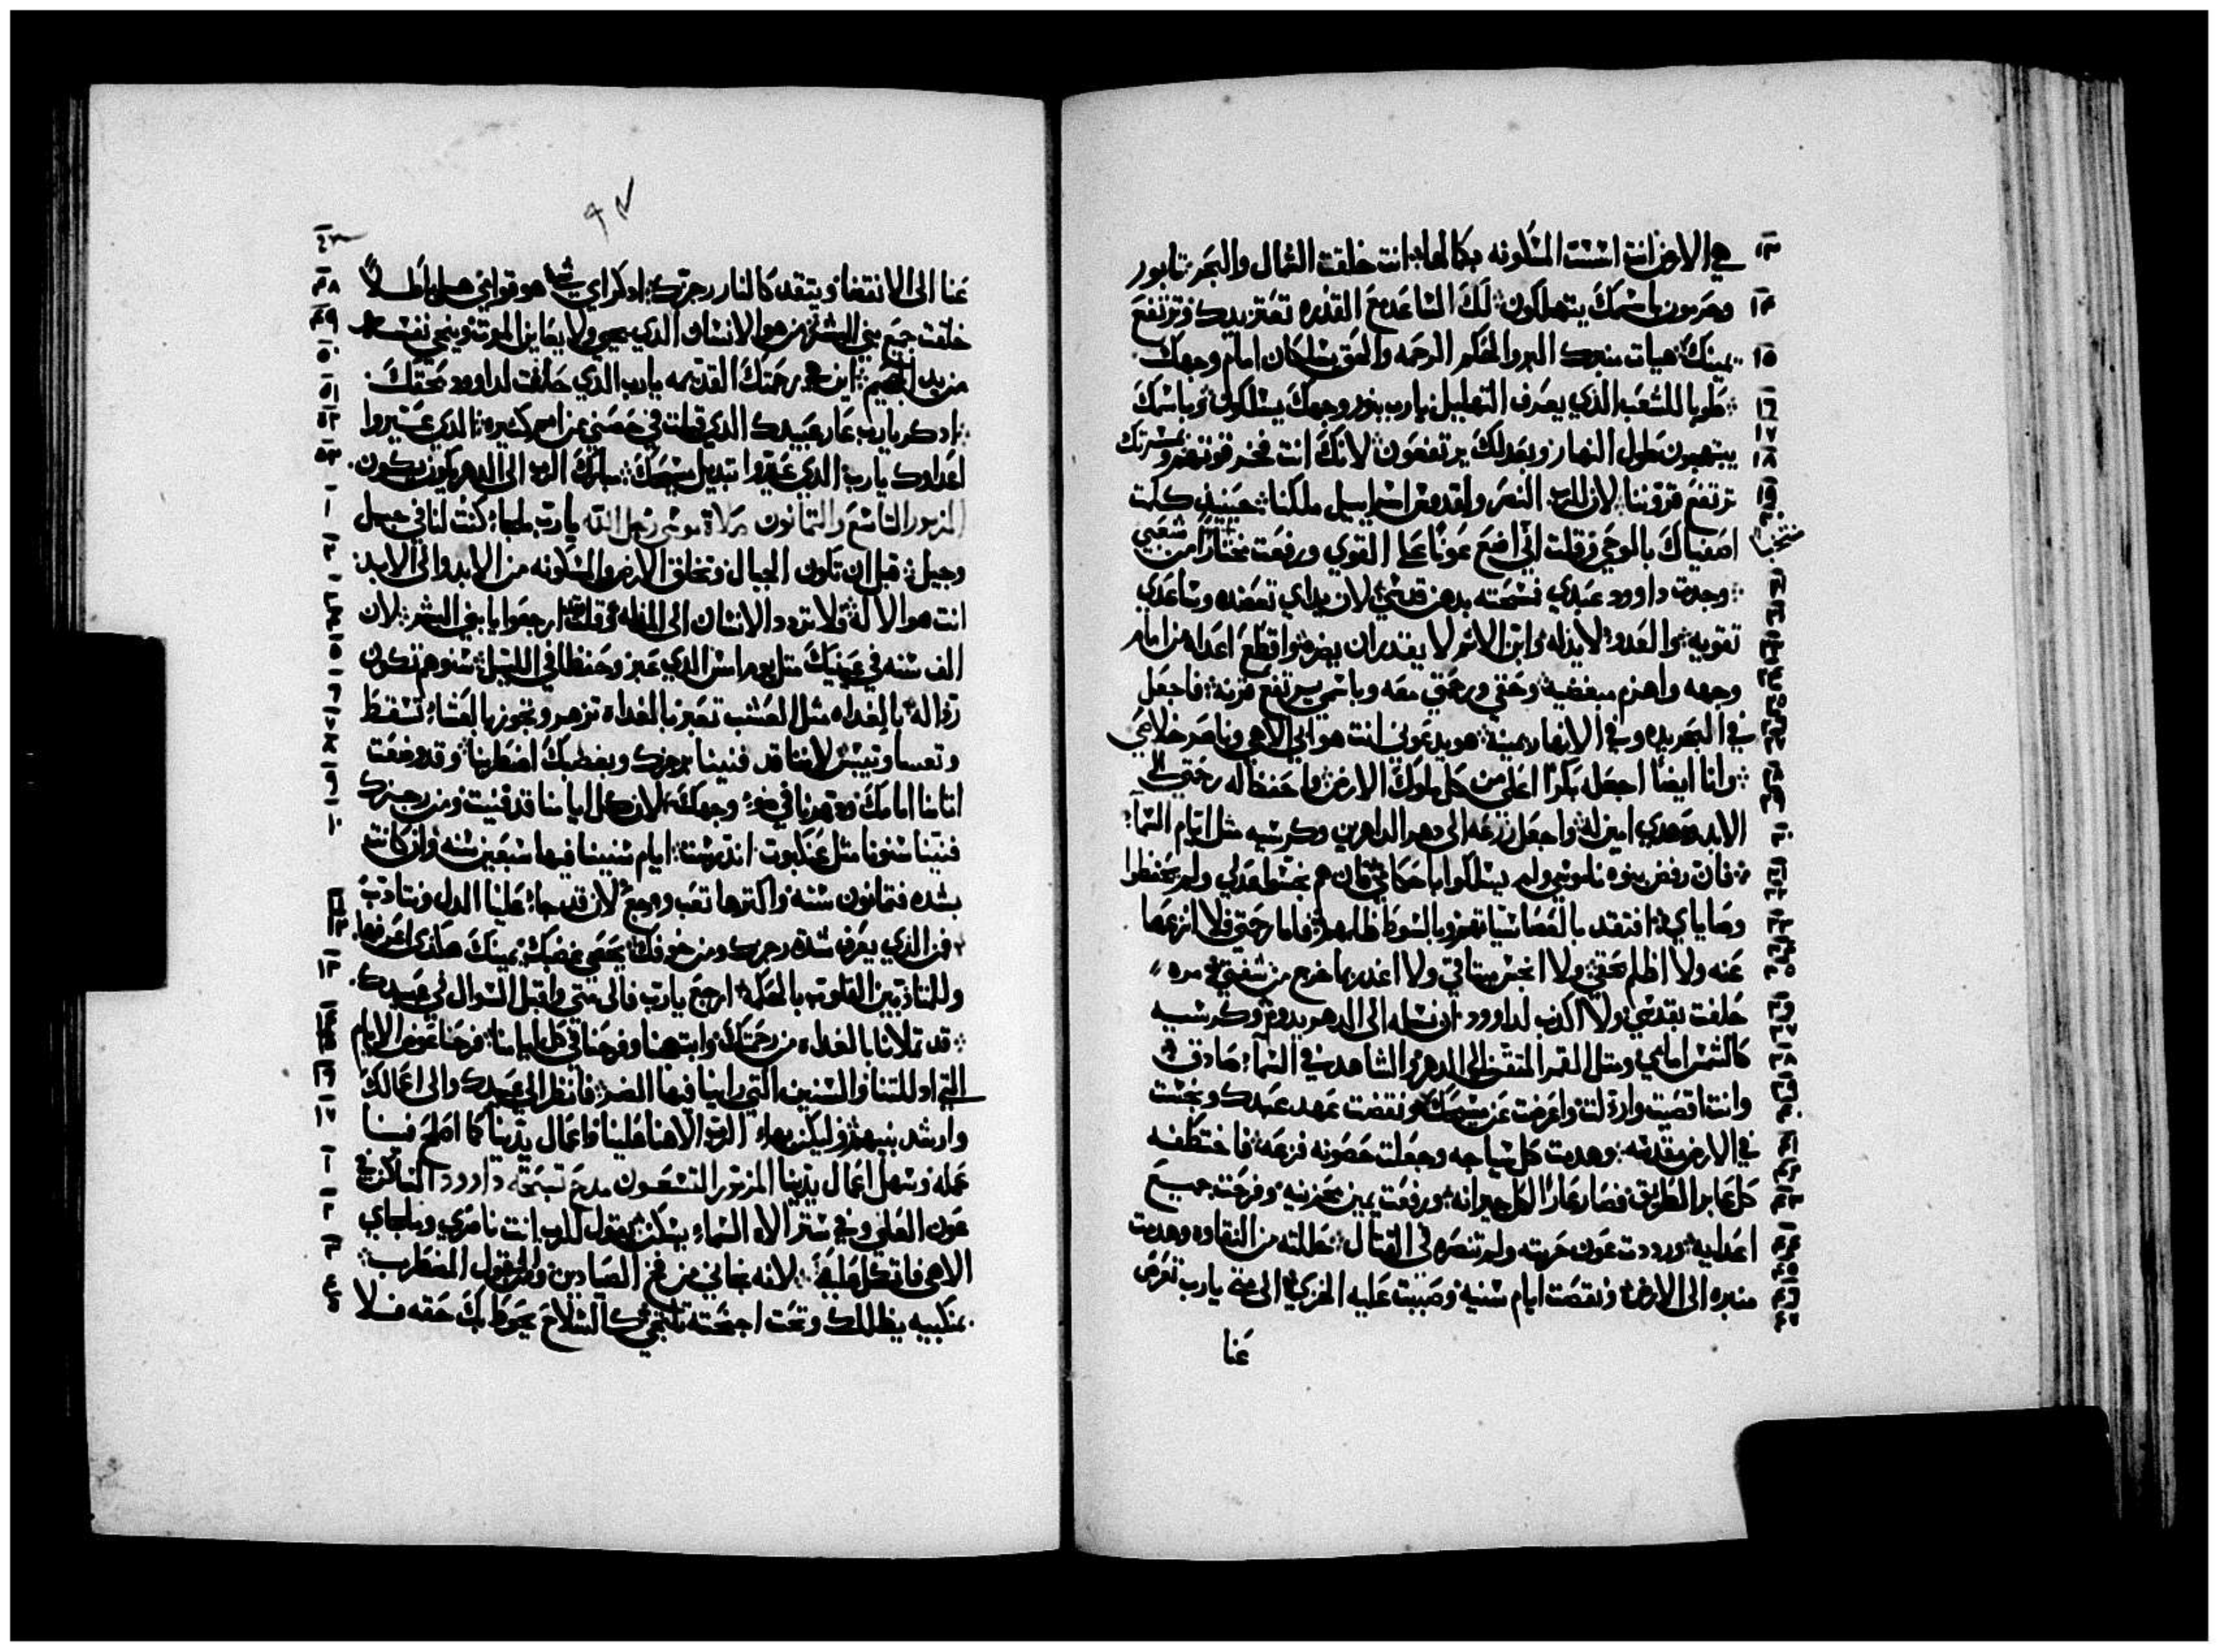 هي الارض انت اسست المسكونه بكمالها انت خلقت الشمال والبحر تابور
وهرمون باسمك يتهللون لك الساعد مع القدره تعتز يدك وترتفع
يمينك هيات منبرك البر والحكم الرحمه والحق يسلكان امام وجهك
طوبا للشعب الذي يعرف التهليل يارب بنور وجهك يسلكون وباسمك
يبتهجون طول النهار وبعدلك يرتفعون لانك انت فخر قوتهم وبمسرتك
ترتفع قروننا لان للرب النصر ولقدوس اسراييل ملكنا حينيذ كلمت
اصفياك بالوحي وقلت اني اضع عونا على القوي ورفعت مختارا من شعبي
وجدت داوود عبدي فمسحته بدهن قدسي لان يداي تعضده وساعدي
تقويه والعدو لا يذله وابن الاثم لا يقدر ان يضره واقطع اعداه من امام
وجهه واهزم مبغضيه وحقي ورحمتي معه وباسمي يرتفع قرنه فاجعل
في البحر يده وفي الانهار يمينه هو يدعوني انت هو ابي الاهي وناصر خلاصي
وانا ايضا اجعله بكرا اعلى من كل ملوك الارض واحفظ له رحمتي الى
الابد وعهدي امين له واجعل زرعه الى دهر الداهرين وكرسيه مثل ايام السما
فان رفض بنوه ناموسي ولم يسلكوا باحكامي فان هم نجسوا عدلي ولم يحفظوا
وصاياي افتقد بالعصا سياتهم وبالسوط ظلمهم فاما رحمتي فلا انزعها
عنه ولا اظلم بحقي ولا انجس ميثاقي ولا اغدر بما خرج من شفتي مره
حلفت بقدسي ولا اكذب لداوود ان نسله الى الدهر يدوم وكرسيه
كالشمس امامي ومثل القمر المتقن الى الدهر والشاهد في السما صادق
وانت اقصيت وارذلت واعرضت عن مسيحك ونقضت عهد عبدك ونجست
في الارض مقدسه وهدمت كل سياجه وجعلت حصونه فزعه فاختطفه
كل عابر الطريق فصار عارا لكل جيرانه ورفعت يمين محزنيه وفرحت جميع
اعدايه ورددت عون حربته ولم تنصره في القتال بطلته من النقاوه وهدمت
منبره الى الارض ونقصت ايام سنيه وصببت عليه الخزي الى متى يارب تعرض
عنا
٩٧
عنا الى الانقضا ويتقد كالنار رجزك اذكر اي شيا هو قوامي هل باطلا
خلقت جميع بني البشر من هو الانسان الذي يحيى ولا يعاين الموت وينجي نفسه
من يد الجحيم اين هي رحمتك القديمه يارب الذي حلفت لداوود بحقك
اذكر يارب عار عبيدك الذي قبلت في حضني من امم كثيره الذي عيروا
اعداك يارب الذي عيروا تبديل مسيحك مبارك الرب الى الدهر يكون يكون
المزمور التاسع والثمانون صلاة موسى رجل الله يارب ملجا كنت لنا في جيل
وجيل قبل ان تكون الجبال وتخلق الارض والمسكونه من الابد والى الابد
انت هو الاله لا تردد الانسان الى المذله وقلت ارجعوا يا بني البشر لان
الف سنه في عينيك مثل يوم امس الذي عبر وحفظا في الليل سنوهم تكون
رذاله بالغداه مثل العشب تعبر بالغداه تزهر وتجوز بالعشا تسقط
وتعسا وتيبس لاننا قد فنينا برجزك وبغضبك اضطربنا وقد وضعت
اثامنا امامك ودهرنا في ضو وجهك لان كل ايامنا قد فنيت ومن رجزك
فنينا سنونا مثل عنكبوت اندرست ايام سنينا فيها سبعين سنه وان كانت
بشده فثمانون سنه واكثرها تعب ووجع لان قد جا علينا الذل ونتادب
فمن الذي يعرف شدة رجزك ومن خوفك يحصي غضبك يمينك هكذى اعرفها
وللمتادبين القلوب بالحكمه ارجع يارب فالى متى واقبل السوال في عبيدك
قد تملانا بالغداه من رحمتك وابتهجنا وفرحنا في كل ايامنا فرحنا عوض الايام
التي اذللتنا والسنين التي راينا فيها الضر فانظر الى عبيدك والى اعمالك
وارشد بنيهم وليكن بهاء الرب الاهنا علينا واعمال يدينا كما اصلح فينا
عمله وسهل اعمال يدينا المزمور التسعون مديح تسبحة داوود الساكن في
عون العلي وفي ستر الاه السماء يسكن يقول للرب انت ناصري وملجاي
الاهي فاتكل عليه لانه نجاني من فخ الصيادين ومن القول المضطرب
بمنكبيه يظللك وتحت اجنحته تلتجي كالسلاح يحوط بك حقه فلا